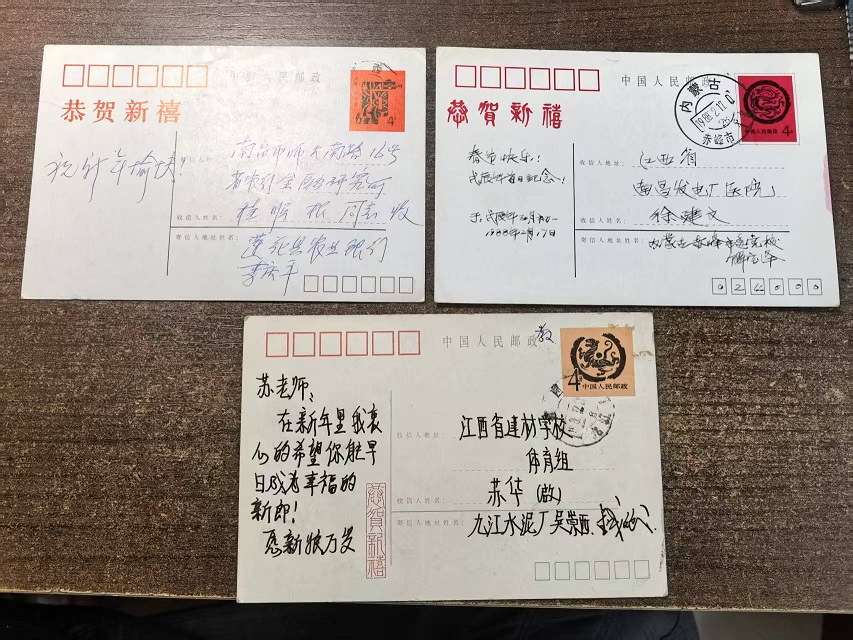 中国人民邮政
4
恭贺新禧
祝新年愉快!
收信人地址:
南昌市师大南路16号
收信人姓名:
同志收
寄信人地址姓名:
莲花县农业银行
李庆平
中国人民邮政
内蒙古
1988.2.17.
赤峰市
4
恭贺新禧
春节快乐!
戊辰年首日纪念!
于:戊辰年正月初一
1988年2月17日
收信人地址:
江西省
南昌发电厂医院
收信人姓名:
徐建文
寄信人地址姓名:
内蒙古赤峰市委党校
024000
中国人民邮政
教
4
中国人民邮政
苏老师:
在新年里我衷
心的希望你能早
日成为幸福的
新郎!
恭賀新禧
收信人地址:
江西省建材学校
体育组
收信人姓名:
苏华(啟)
寄信人地址姓名:
九江水泥厂吴